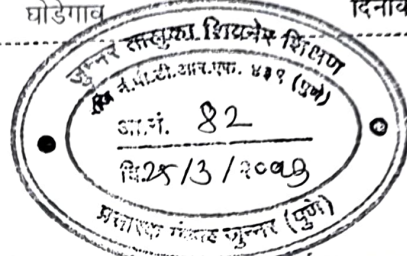 घोडेगाव
दिनांक
जुन्नर तालुका शिवनेर शिक्षण
रजि नं.पी.टी.आर.एफ. ४३९ (पुणे)
आ.नं. 82
दि. 25/3/२००७
प्रसारक मंडळ जुन्नर (पुणे)